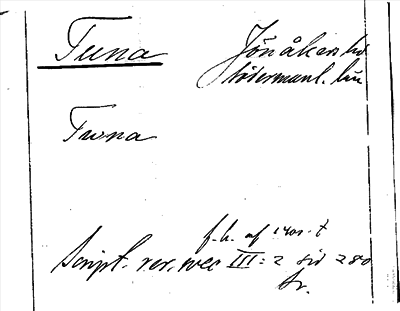 Tuna Jönåkers hd
Södermanl. län
Twna
f. h. af
Script. rer. svec III:2 sid 280